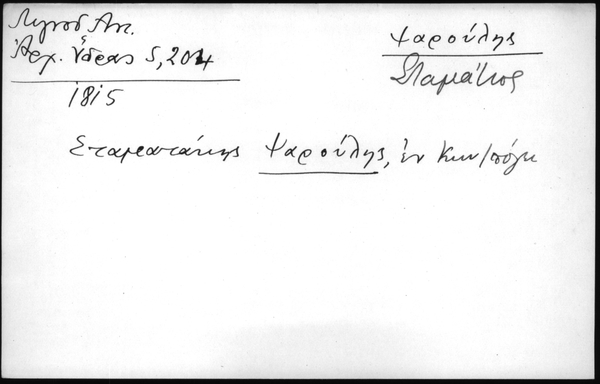 Λιγνοῦ Ἀντ.
Ἀρχ. Ὕδρας 5, 204
1815
Ψαρούλης
Σταμάτιος
Σταματάκης Ψαρούλης, ἐν Κων/πόλει